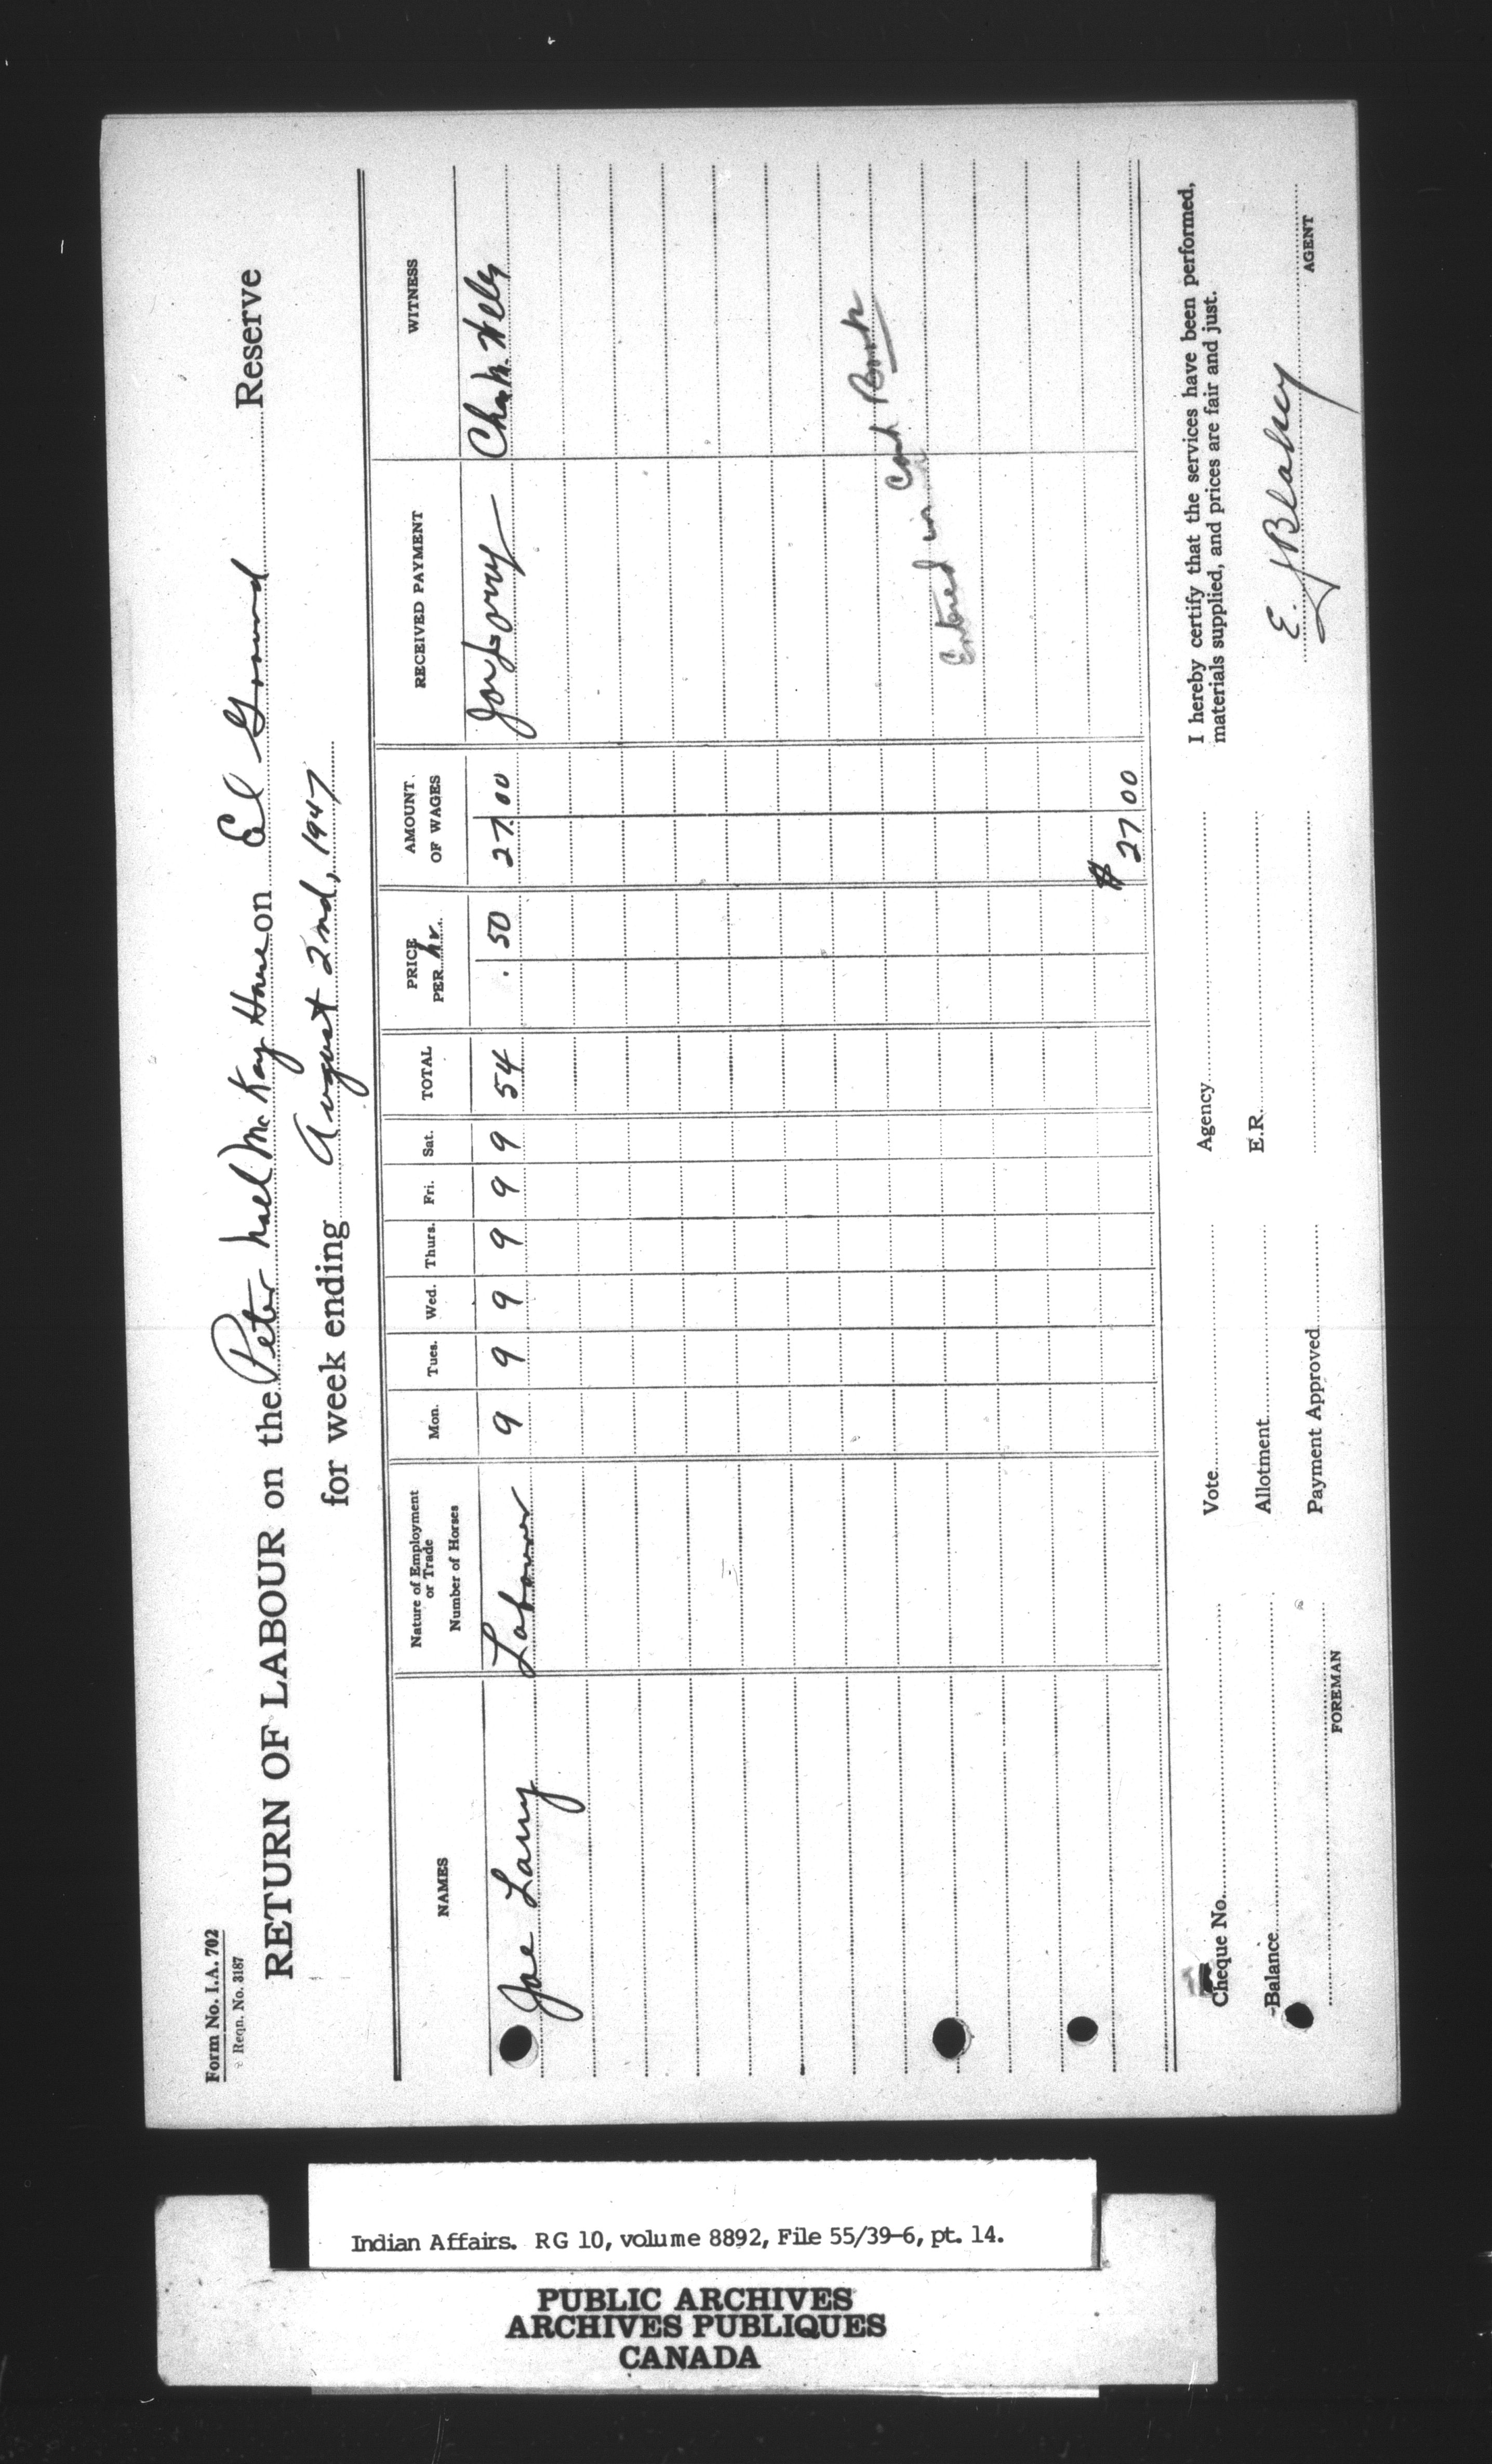 Form No. I.A. 702
Reqn. No. 3187
RETURN OF LABOUR on the Peter McKay House on El Ground Reserve
for week ending August 2nd, 1947
NAMES Nature of Employment or Trade Number of Horses Mon. Tues. Wed. Thurs. Fri. Sat. TOTAL PRICE PER hr. AMOUNT OF WAGES RECEIVED PAYMENT WITNESS
Joe Larry Labourer 9 9 9 9 9 9 54 .50 27.00 Joe Larry
Entered in Cash Book
$ 27 00
I hereby certify that the services have been performed,
materials supplied, and prices are fair and just.
Cheque No. Vote Agency
Balance Allotment E.R.
Payment Approved
E. J. Blakey
FOREMAN AGENT
Indian Affairs. RG 10, volume 8892, File 55/39-6, pt. 14.
PUBLIC ARCHIVES
ARCHIVES PUBLIQUES
CANADA